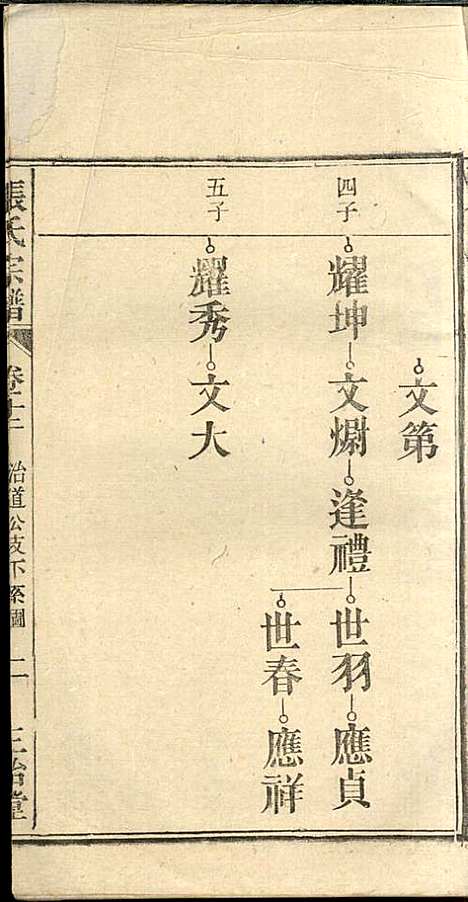 文第
四子
耀坤 文爓 逢禮 世羽 應貞
世春 應祥
五子
耀秀 文大
張氏宗譜 卷十二 治道公支下系圖 二 三治堂